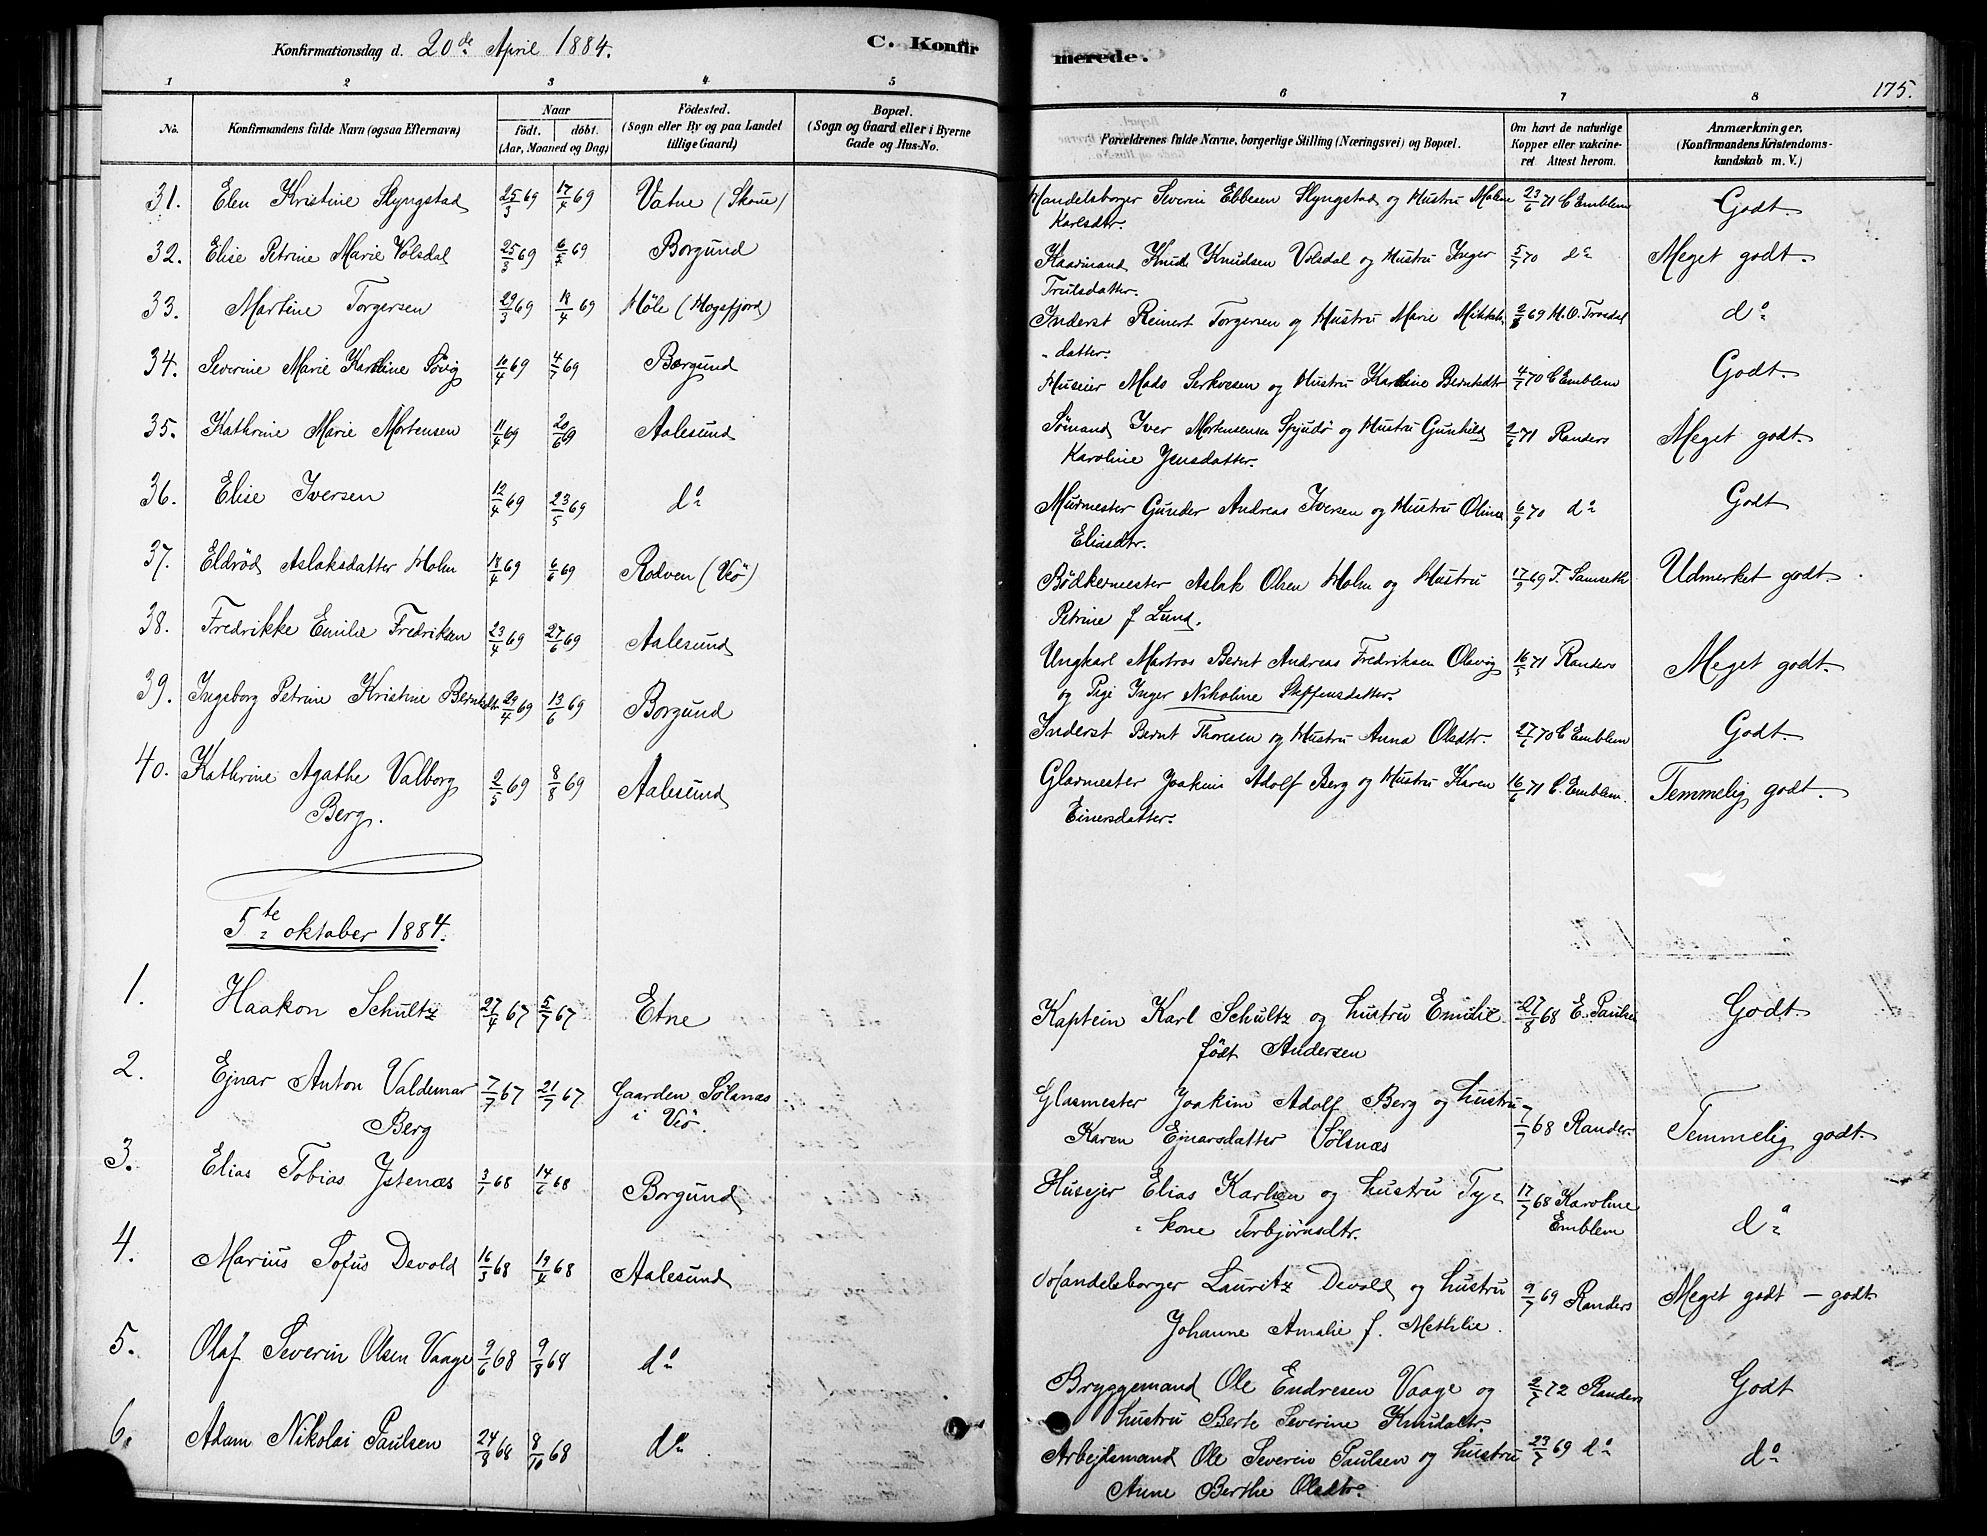 Konfirmationsdag d. 20de April 1884.
C. Konfirmerede.
175.
1 2 3 4 5 6 7 8
No.
Konfirmandens fulde Navn (ogsaa Efternavn)
Naar
født. døbt.
(Aar, Maaned og Dag)
Fødested.
(Sogn eller By og paa Landet tillige Gaard)
Bopæl.
(Sogn og Gaard eller i Byerne Gade og Hus-No.
Forældrenes fulde Navne, borgerlige Stilling (Næringsvei) og Bopæl.
Om havt de naturlige Kopper eller vakcineret. Attest herom.
Anmærkninger.
(Konfirmandens Kristendomskundskab m. V.)
31. Elen Kristine Slyngstad 25/3 69 17/4 69 Vatne (Skoue) Handelsborger Severin Ebbesen Slyngstad og Hustru Malene 23/6 71 C Emblem Godt.
Karlsdtr.
32. Elise Petrine Marie Volsdal 25/3 69 6/4 69 Borgund Kaarmand Knud Knudsen Volsdal og Hustru Inger 5/7 70 do Meget godt.
Trulsdatter.
33. Martine Torgersen 29/3 69 18/4 69 Høle (Høgsfjord) Inderst Reinert Torgersen og Hustru Marie Mikkels 2/8 69 M.O. Trosdal do
datter.
34. Severine Marie Karoline Søvig 10/4 69 4/7 69 Borgund Huseier Mads Serkvesen og Hustru Karoline Berntsdtr 4/7 70 C Emblem Godt.
35. Kathrine Marie Mortensen 11/4 69 20/6 69 Aalesund Sømand Iver Mortensen Spjudø og Hustru Gunhild 2/6 71 Randers Meget godt.
Karoline Jensdatter.
36. Elise Iversen 12/4 69 23/5 69 do Murmester Gunder Andreas Iversen og Hustru Olina 6/9 70 do Godt
Eliasdtr.
37. Eldrød Aslaksdatter Holm 18/4 69 6/6 69 Rødven (Veø) Bødkermester Aslak Olsen Holm og Hustru 17/9 69 T. Samseth Udmerket godt.
Petrine f Lund.
38. Fredrikke Emilie Fredriksen 23/4 69 27/6 69 Aalesund Ungkarl Matros Bernt Andreas Fredriksen Olsvig 16/5 71 Randers Meget godt.
og Pige Inger Nikoline Steffensdatter.
39. Ingeborg Petrine Kristine Berntsdtr. 29/4 69 13/6 69 Borgund Inderst Bernt Thoresen og Hustru Anna Olsdtr. 27/6 70 C Emblem Godt.
40. Kathrine Agathe Valborg 2/5 69 8/8 69 Aalesund Glasmester Joakim Adolf Berg og Hustru Karen 16/6 71 C. Emblem. Temmelig godt.
Berg. Einersdatter.
5te oktober 1884.
1. Haakon Schultz 27/4 67 5/7 67 Etne Kaptein Karl Schultz og hustru Emilie 27/8 68 E. Paulsen Godt
født Andersen
2. Ejnar Anton Valdemar 7/7 67 21/7 67 Gaarden Sølsnæs Glasmester Joakim Adolf Berg og hustru 7/7 68 Randers Temmelig godt.
Berg i Veø. Karen Ejnarsdatter Sølsnæs
3. Elias Tobias Ystenæs 3/7 68 14/6 68 Borgund Husejer Elias Karlsen og hustru Ty- 17/7 68 Karoline Emblem do
kone Torbjørnsdtr.
4. Marius Sofus Devold 16/3 68 19/4 68 Aalesund Handelsborger Lauritz Devold og hustru 9/7 69 Randers Meget godt - godt.
Johanne Amalie f. Methlie.
5. Olaf Severin Olsen Vaage 9/6 68 9/8 68 do Bryggemand Ole Endresen Vaage og 2/7 72 Randers Godt
hustru Berte Severine Knudsdtr.
6. Adam Nikolai Paulsen 24/8 68 8/10 68 do Arbejdsmand Ole Severin Paulsen og hustru 23/7 69 do do
Anne Berthe Olsdtr.